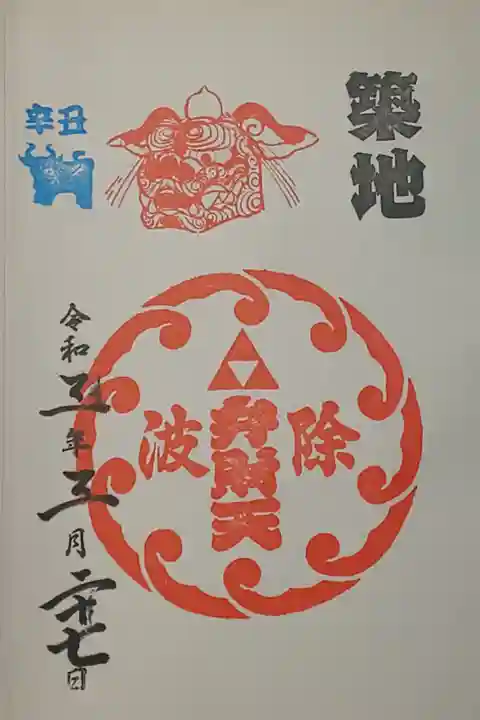 築地
辛丑
波除
弁財天
令和三年三月二十七日